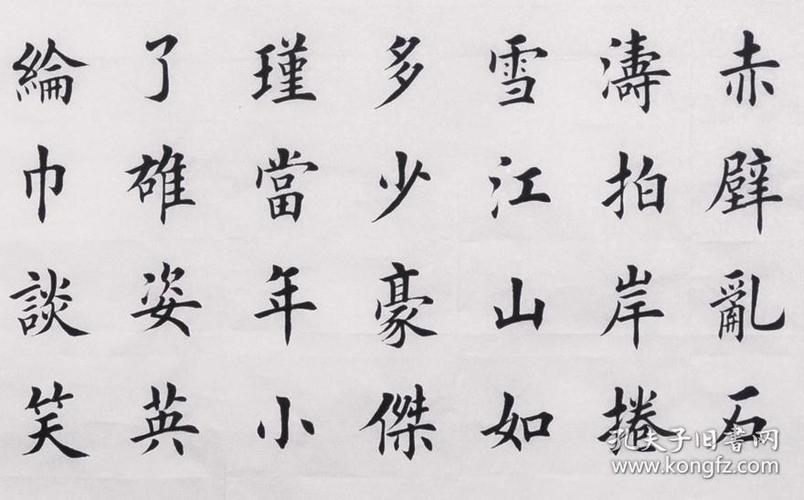 赤壁亂石
濤拍岸捲
雪江山如
多少豪傑
瑾當年小
了雄姿英
綸巾談笑
孔夫子旧书网
www.kongfz.com